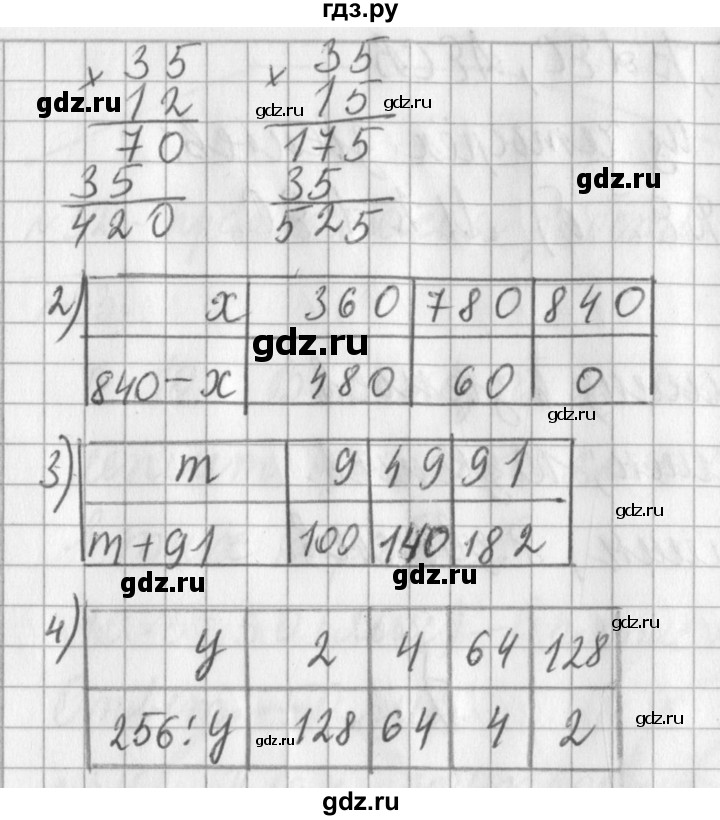 гдз.ру
35 35
× 12 × 15
gdz.ru gdz.ru gdz.ru
70 175
35 35 gdz.ru
420 525
2) x 360 780 840
gdz.ru
840-x 480 60 0
gdz.ru
3) m 9 49 91
gdz.ru
m+91 100 140 182
gdz.ru gdz.ru
4) y 2 4 64 128
gdz.ru
256:y 128 64 4 2
gdz.ru gdz.ru
gdz.ru